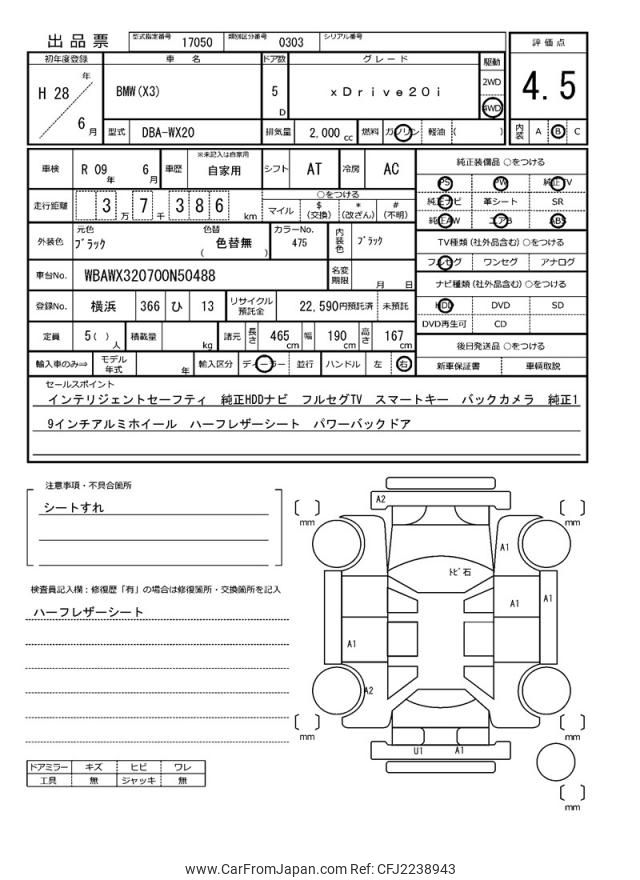 出品票 型式指定番号 17050 類別区分番号 0303 シリアル番号
評価点
4.5
内装 A B C
初年度登録 車 名 ドア数 グレード 駆動
H 28 年 6 月 BMW(X3) 5 D xDrive20i 2WD 4WD
型式 DBA-WX20 排気量 2,000 cc 燃料 ガソリン 軽油 ( )
車検 R 09 年 6 月 車歴 ※未記入は自家用 自家用 シフト AT 冷房 AC
走行距離 3 万 7 千 3 8 6 km ○をつける
マイル $ (交換) * (改ざん) # (不明)
外装色 元色 ブラック 色替 ( 色替無 ) カラーNo. 475 内装色 ブラック
車台No. WBAWX320700N50488 名変期限 月 日
登録No. 横浜 366 ひ 13 リサイクル預託金 22,590円預託済 未預託
定員 5( ) 人 積載量 kg 諸元 長さ 465 cm 幅 190 cm 高さ 167 cm
輸入車のみ⇒ モデル年式 年 輸入区分 ディーラー 並行 ハンドル 左 右
純正装備品 ○をつける
PS PW 純正TV
純正ナビ 革シート SR
純正AW エアB ABS
TV種類(社外品含む)○をつける
フルセグ ワンセグ アナログ
ナビ種類(社外品含む)○をつける
HDD DVD SD
DVD再生可 CD
後日発送品 ○をつける
新車保証書 車輌取説
セールスポイント
インテリジェントセーフティ 純正HDDナビ フルセグTV スマートキー バックカメラ 純正1
9インチアルミホイール ハーフレザーシート パワーバックドア
注意事項・不具合箇所
シートすれ
検査員記入欄:修復歴「有」の場合は修復箇所・交換箇所を記入
ハーフレザーシート
ドアミラー キズ ヒビ ワレ
工具 無 ジャッキ 無
A2
mm
mm
A1
トビ石
A1
A1
A1
A2
mm
mm
U1 A1
mm
www.CarFromJapan.com Ref: CFJ2238943